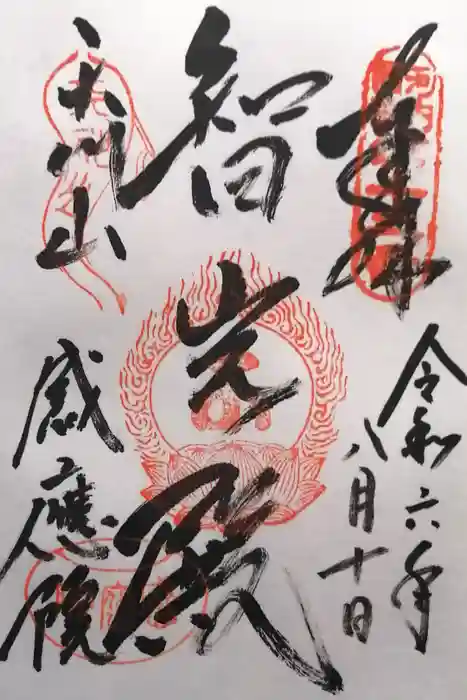 奉拝
令和六年
八月十日
智光殿
天川山
感應院